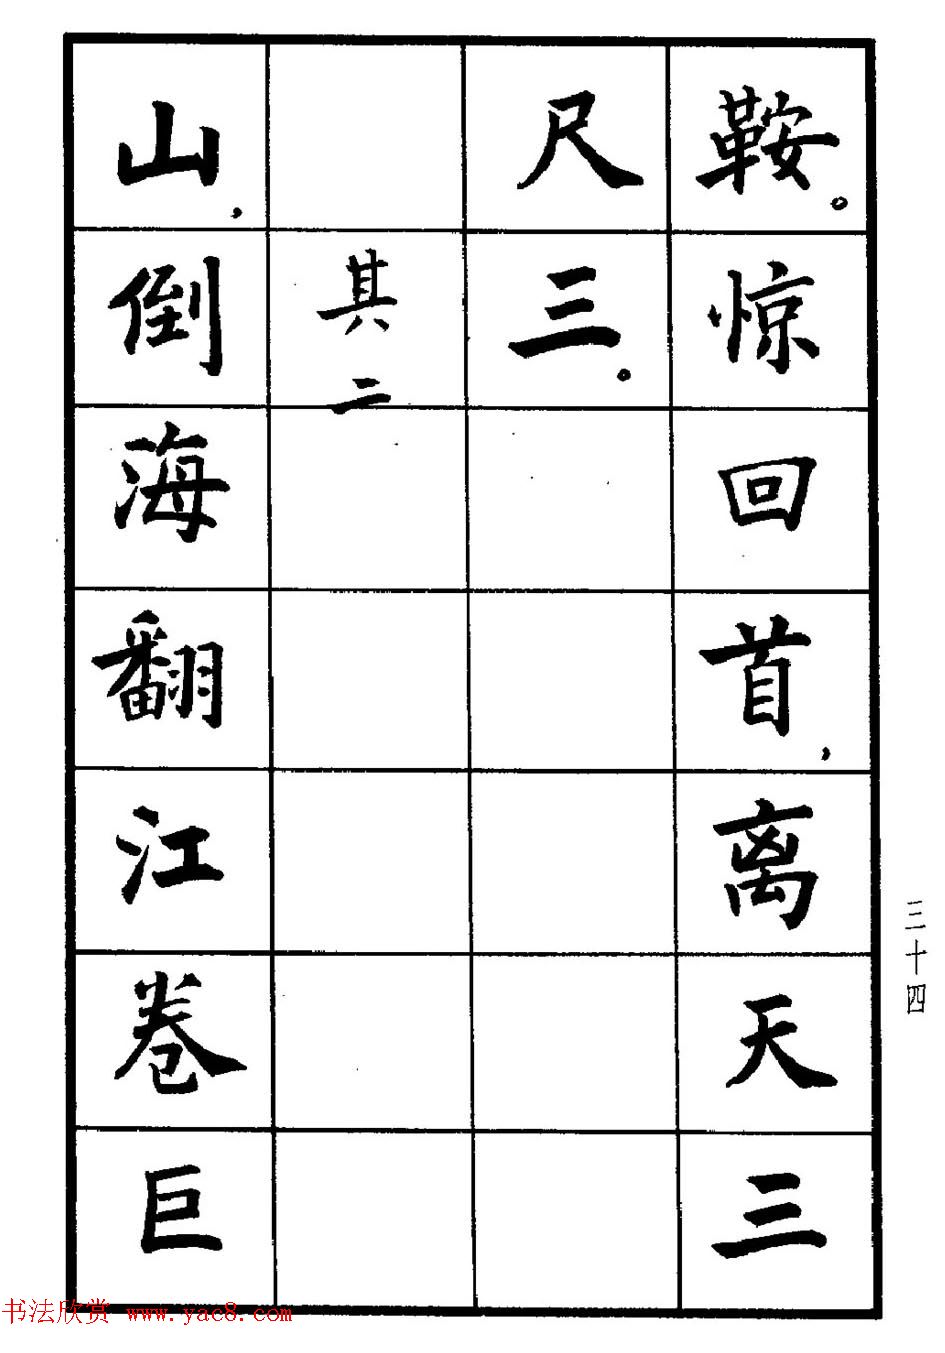 鞍。惊回首，离天三
尺三。
其二
山，倒海翻江卷巨
三十四
书法欣赏 www.yac8.com